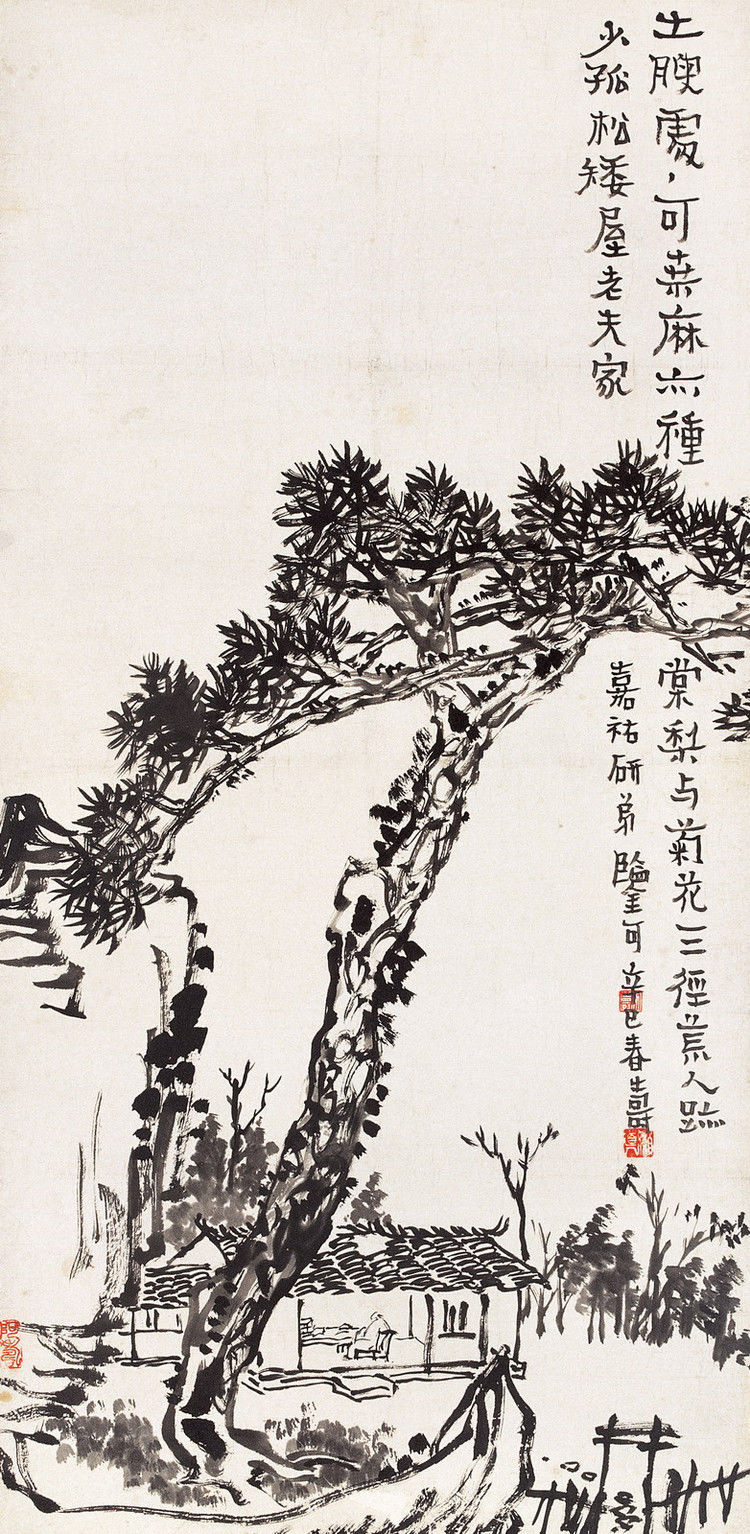 土腴處、可桒麻亦種
棠梨与菊花三徑荒人跡
少孤松矮屋老夫家
嘉祐研弟鑒可 辛巳春壽
阿壽